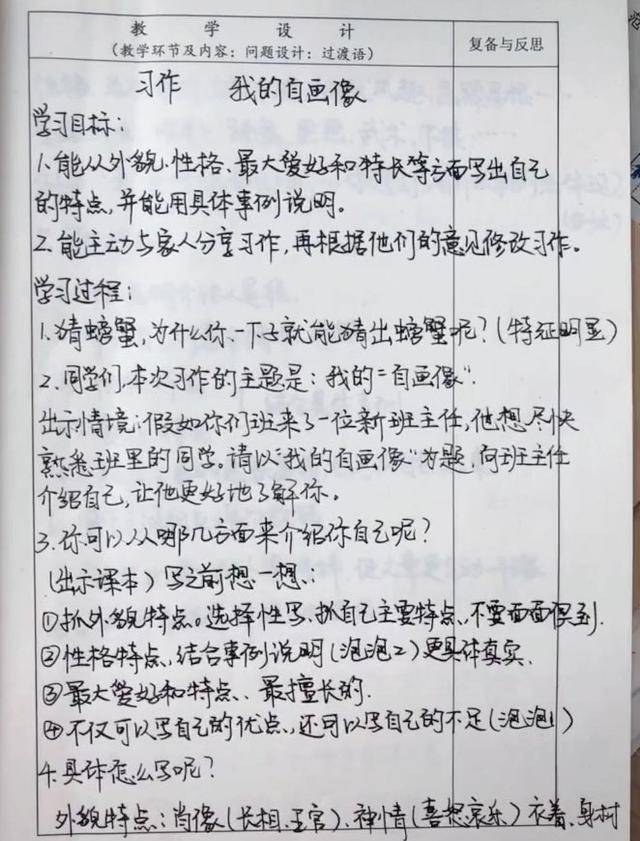 教 学 设 计
（教学环节及内容：问题设计：过渡语）
复备与反思
习作 我的自画像
学习目标：
1.能从外貌、性格、最大爱好和特长等方面写出自己
的特点,并能用具体事例说明。
2.能主动与家人分享习作,再根据他们的意见修改习作。
学习过程：
1.猜螃蟹,为什么你一下子就能猜出螃蟹呢？(特征明显)
2.同学们,本次习作的主题是：我的“自画像”.
出示情境:假如你们班来了一位新班主任,他想尽快
熟悉班里的同学。请以“我的自画像”为题,向班主任
介绍自己,让他更好地了解你。
3.你可以从哪几方面来介绍你自己呢？
(出示课本) 写之前想一想:
①抓外貌特点。选择性写,抓自己主要特点,不要面面俱到.
②性格特点,结合事例说明(泡泡2)更具体真实.
③最大爱好和特点、最擅长的.
④不仅可以写自己的优点,还可以写自己的不足(泡泡1)
4.具体怎么写呢？
外貌特点：肖像(长相、五官)、神情(喜怒哀乐)衣着、身材